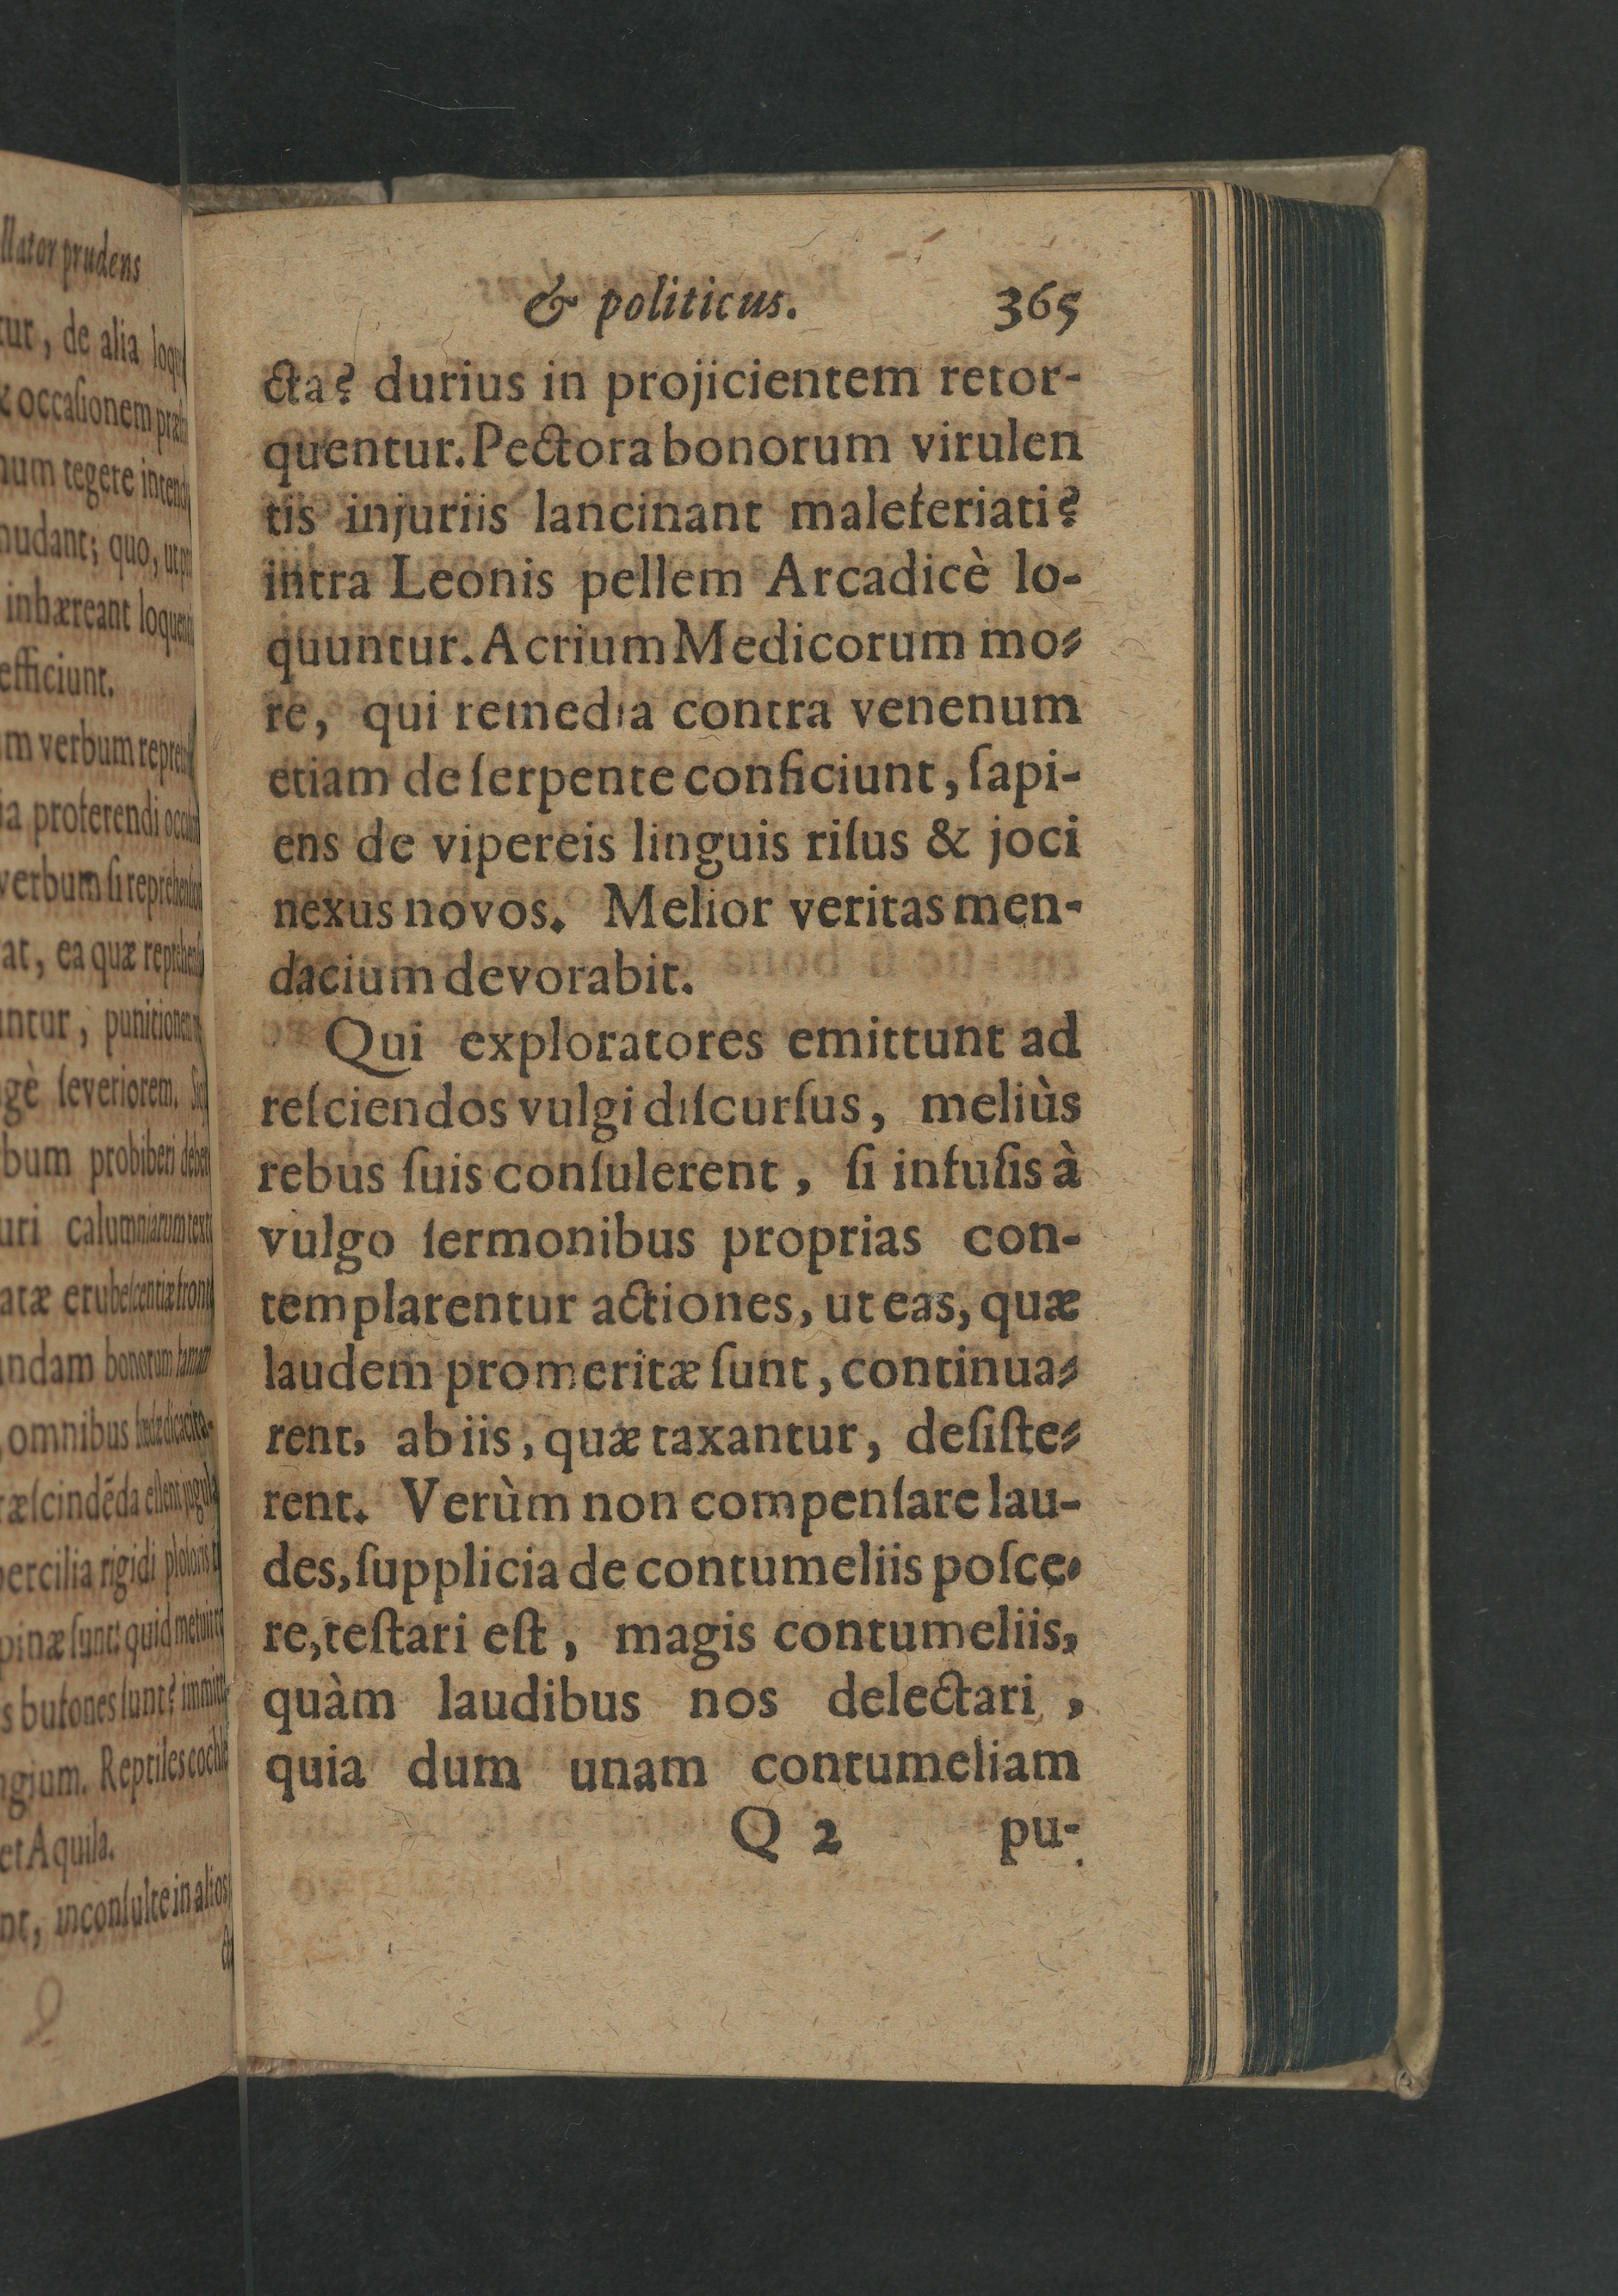 llator prudens
tur, de alia loqu
& occasionem præ
num tegere intend
nudant; quo, ut
inhæreant loquen
efficiunt.
m verbum repre
ia proferendi occ
verbum si reprehen
at, ea quæ reprehen
ntur, punitionem
gè severiorem. Sic
bum probiberi deben
uri calumniarum text
atæ erubescentiæ front
ndam bonorum famam
omnibus dicacita-
ræscindēda essent jugula
percilia rigidi
pinæ sunt: quid metuit
s bufones sunt? immin
gium. Reptiles cochl
et Aquila.
nt, inconsulte in alios
&ast; politicus. 365
cta? durius in projicientem retor-
quentur. Pectora bonorum virulen
tis injuriis lancinant maleferiati?
intra Leonis pellem Arcadicè lo-
quuntur. Acrium Medicorum mo-
re, qui remedia contra venenum
etiam de ſerpente conficiunt, ſapi-
ens de vipereis linguis riſus & joci
nexus novos. Melior veritas men-
dacium devorabit.
Qui exploratores emittunt ad
reſciendos vulgi diſcurſus, meliùs
rebus ſuis conſulerent, ſi infuſis à
vulgo ſermonibus proprias con-
templarentur actiones, ut eas, quæ
laudem promeritæ ſunt, continua-
rent, ab iis, quæ taxantur, deſiſte-
rent. Verùm non compenſare lau-
des, ſupplicia de contumeliis poſce-
re, teſtari eſt, magis contumeliis,
quàm laudibus nos delectari,
quia dum unam contumeliam
Q 2 pu-